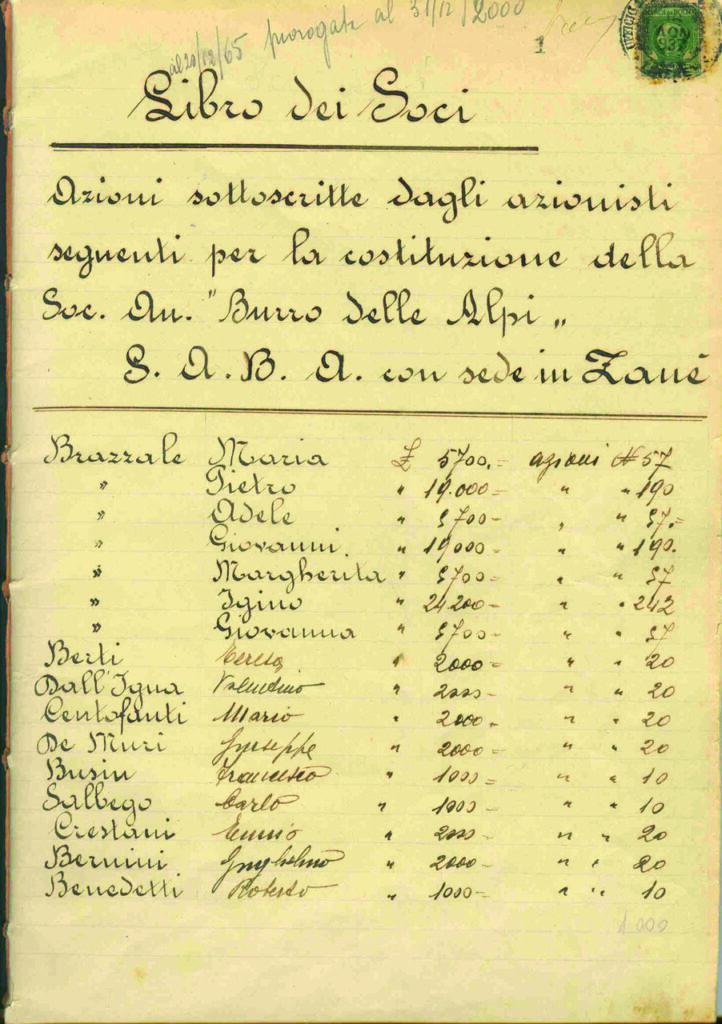 al 20/12/65 prorogata al 31/12/2000
1
Libro dei Soci
Azioni sottoscritte dagli azionisti
seguenti per la costituzione della
Soc. An. "Burro delle Alpi"
S. A. B. A. con sede in Zanè
Brazzale Maria £ 5700.= azioni N° 57
" Pietro " 19.000= " " 190
" Adele " 5700- " " 57.=
" Giovanni. " 19000- " " 190.
" Margherita " 5700- " " 57
" Igino " 24200- " " 242
" Giovanna " 5700- " " 57
Berti Teresa " 2000- " " 20
Dall'Igna Valentino " 2000- " " 20
Centofanti Mario " 2000- " " 20
De Muri Giuseppe " 2000= " " 20
Busin Francesco " 1000= " " 10
Salbego Carlo " 1000- " " 10
Crestani Ennio " 2000- " " 20
Bernini Guglielmo " 2000- " " 20
Benedetti Roberto " 1000- " " 10
1000